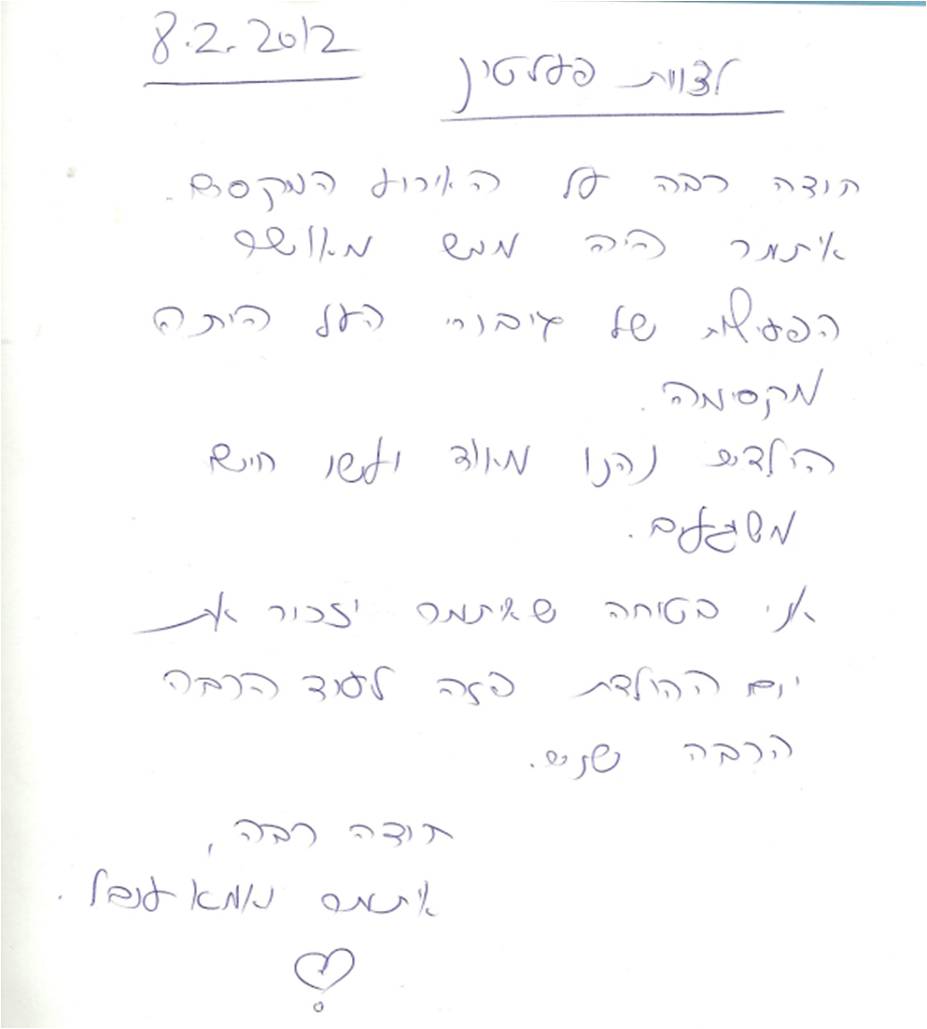 8.2.2012
לצוות פעלטון
תודה רבה על האירוע המקסים.
איתמר היה ממש מאושר
הפעילות של גיבורי העל היתה
מקסימה.
הילדים נהנו מאוד ועשו חיים
משגעים.
אני בטוחה שאיתמר יזכור את
יום ההולדת הזה לעוד הרבה
הרבה שנים.
תודה רבה,
איתמר ואמא ענבל.